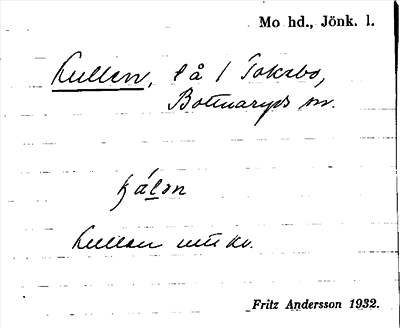 Mo hd., Jönk. l.
Kullen, l å / Toksbo,
Bottnaryds sn.
Kullen
Fritz Andersson 1932.